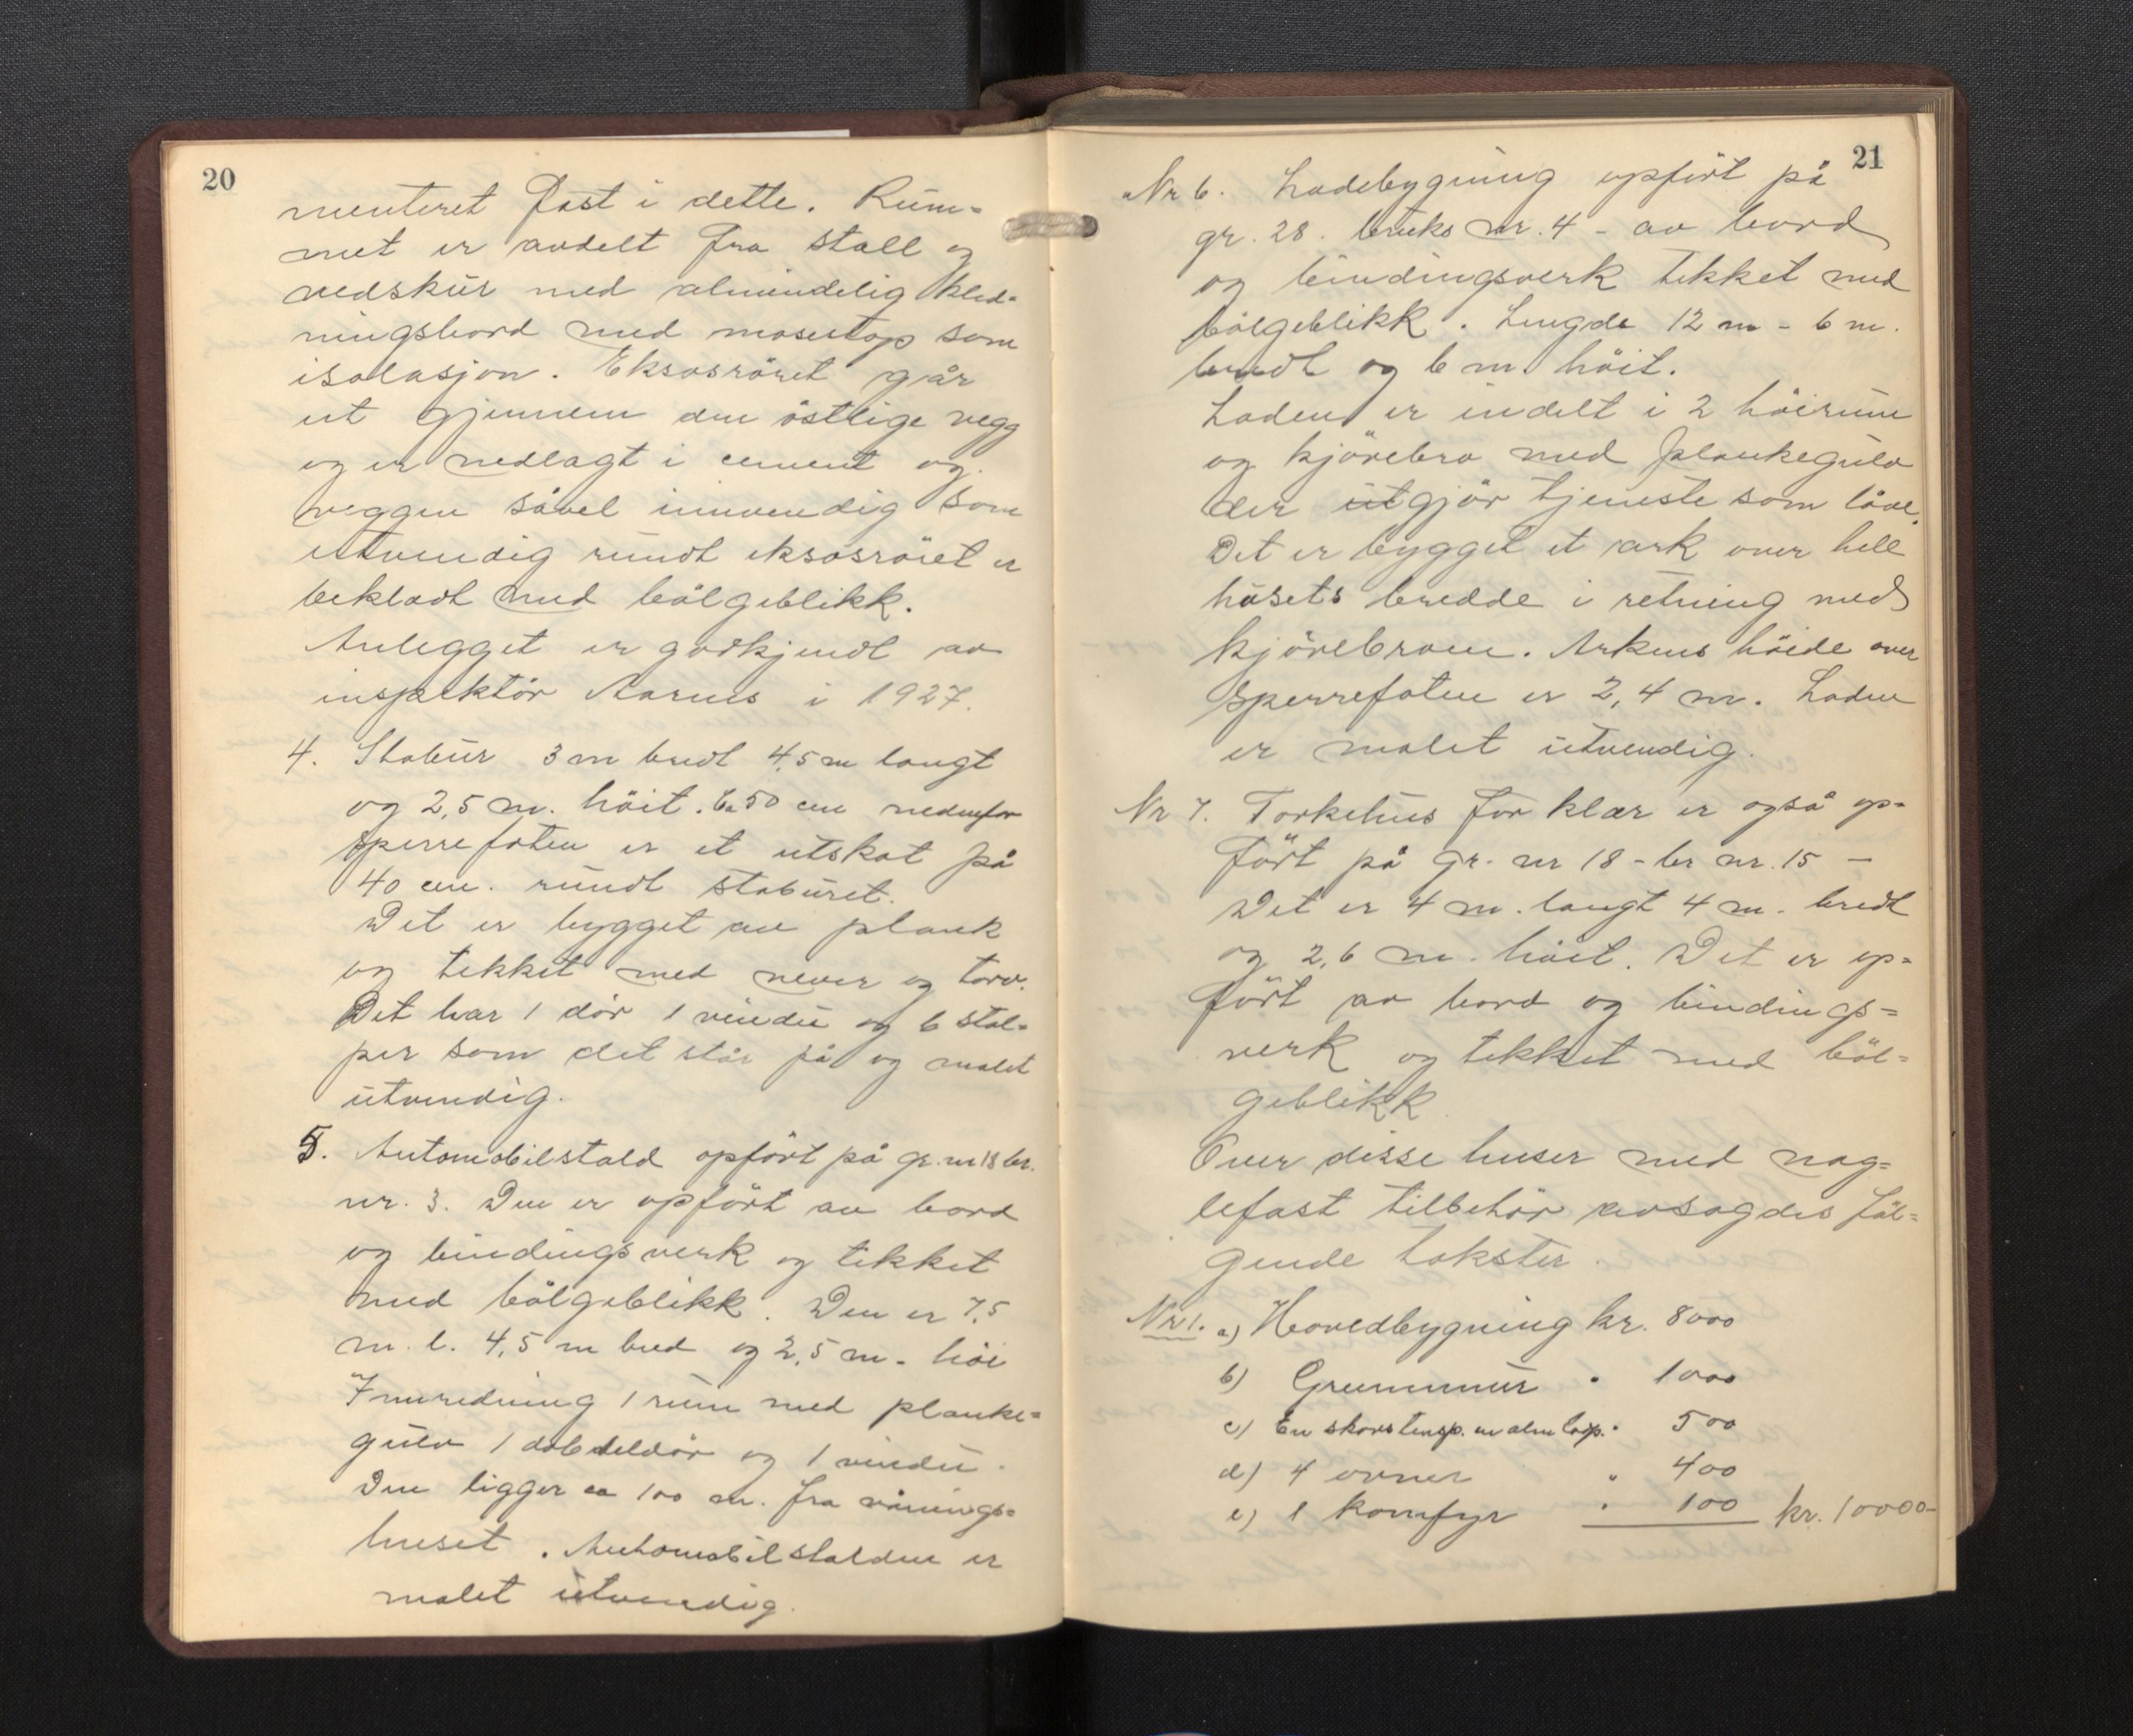 20
menteret fast i dette. Rum-
met er avdelt fra stall og
vedskur med almindelig kled-
ningsbord med mosestop som
isolasjon. Eksosröret går
ut gjennem den östlige vegg
og er nedlagt i cement og
veggen såvel innvendig som
utvendig rundt eksosröret er
bekladt med bölgeblikk.
Anlegget er godkjendt av
inspektör Aarnes i 1927.
4. Stabur 3 m bredt 4,5 m langt
og 2,5 m. höit. Ca 50 cm nedenfor
sperrefoten er et utskot på
40 cm. rundt staburet.
Det er bygget av plank
og tekket med never og torv.
Det har 1 dör 1 vindu og 6 stol-
per som det står på og malet
utvendig.
5. Automobilstald opfört på gr. nr 18 br.
nr. 3. Den er opfört av bord
og bindingsverk og tekket
med bölgeblikk. Den er 7,5
m. l. 4,5 m bred og 2,5 m. höi
Innredning 1 rum med planke-
gulv 1 dobbeldör og 1 vindu.
Den ligger ca 100 m. fra vånings-
huset. Automobilstalden er
malet utvendig.
21
Nr 6. Ladebygning opfört på
gr. 28. bruks nr. 4 - av bord
og bindingsverk tekket med
bölgeblikk. Lengde 12 m - 6 m.
bredt og 6 m höit.
Laden er indelt i 2 höirum
og kjörebro med plankegulv
der utgjör tjeneste som låve.
Det er bygget et ark over hele
husets bredde i retning med
kjörebroen. Arkens höide over
sperrefoten er 2,4 m. Laden
er malet utvendig.
Nr 7. Torkehus for klær er også op-
fört på gr. nr 18 - br nr. 15 -
Det er 4 m. langt 4 m. bredt
og 2,6 m. höit. Det er op-
fört av bord og bindings-
verk og tekket med böl-
geblikk.
Over disse huser med nag-
lefast tilbehör avsagdes föl-
gende takster.
Nr 1. a) Hovedbygning kr. 8000
b) Grunnmur " 1000
c) En skorstensp. m alm. löp. " 500
d) 4 ovner " 400
e) 1 komfyr " 100 kr. 10000-